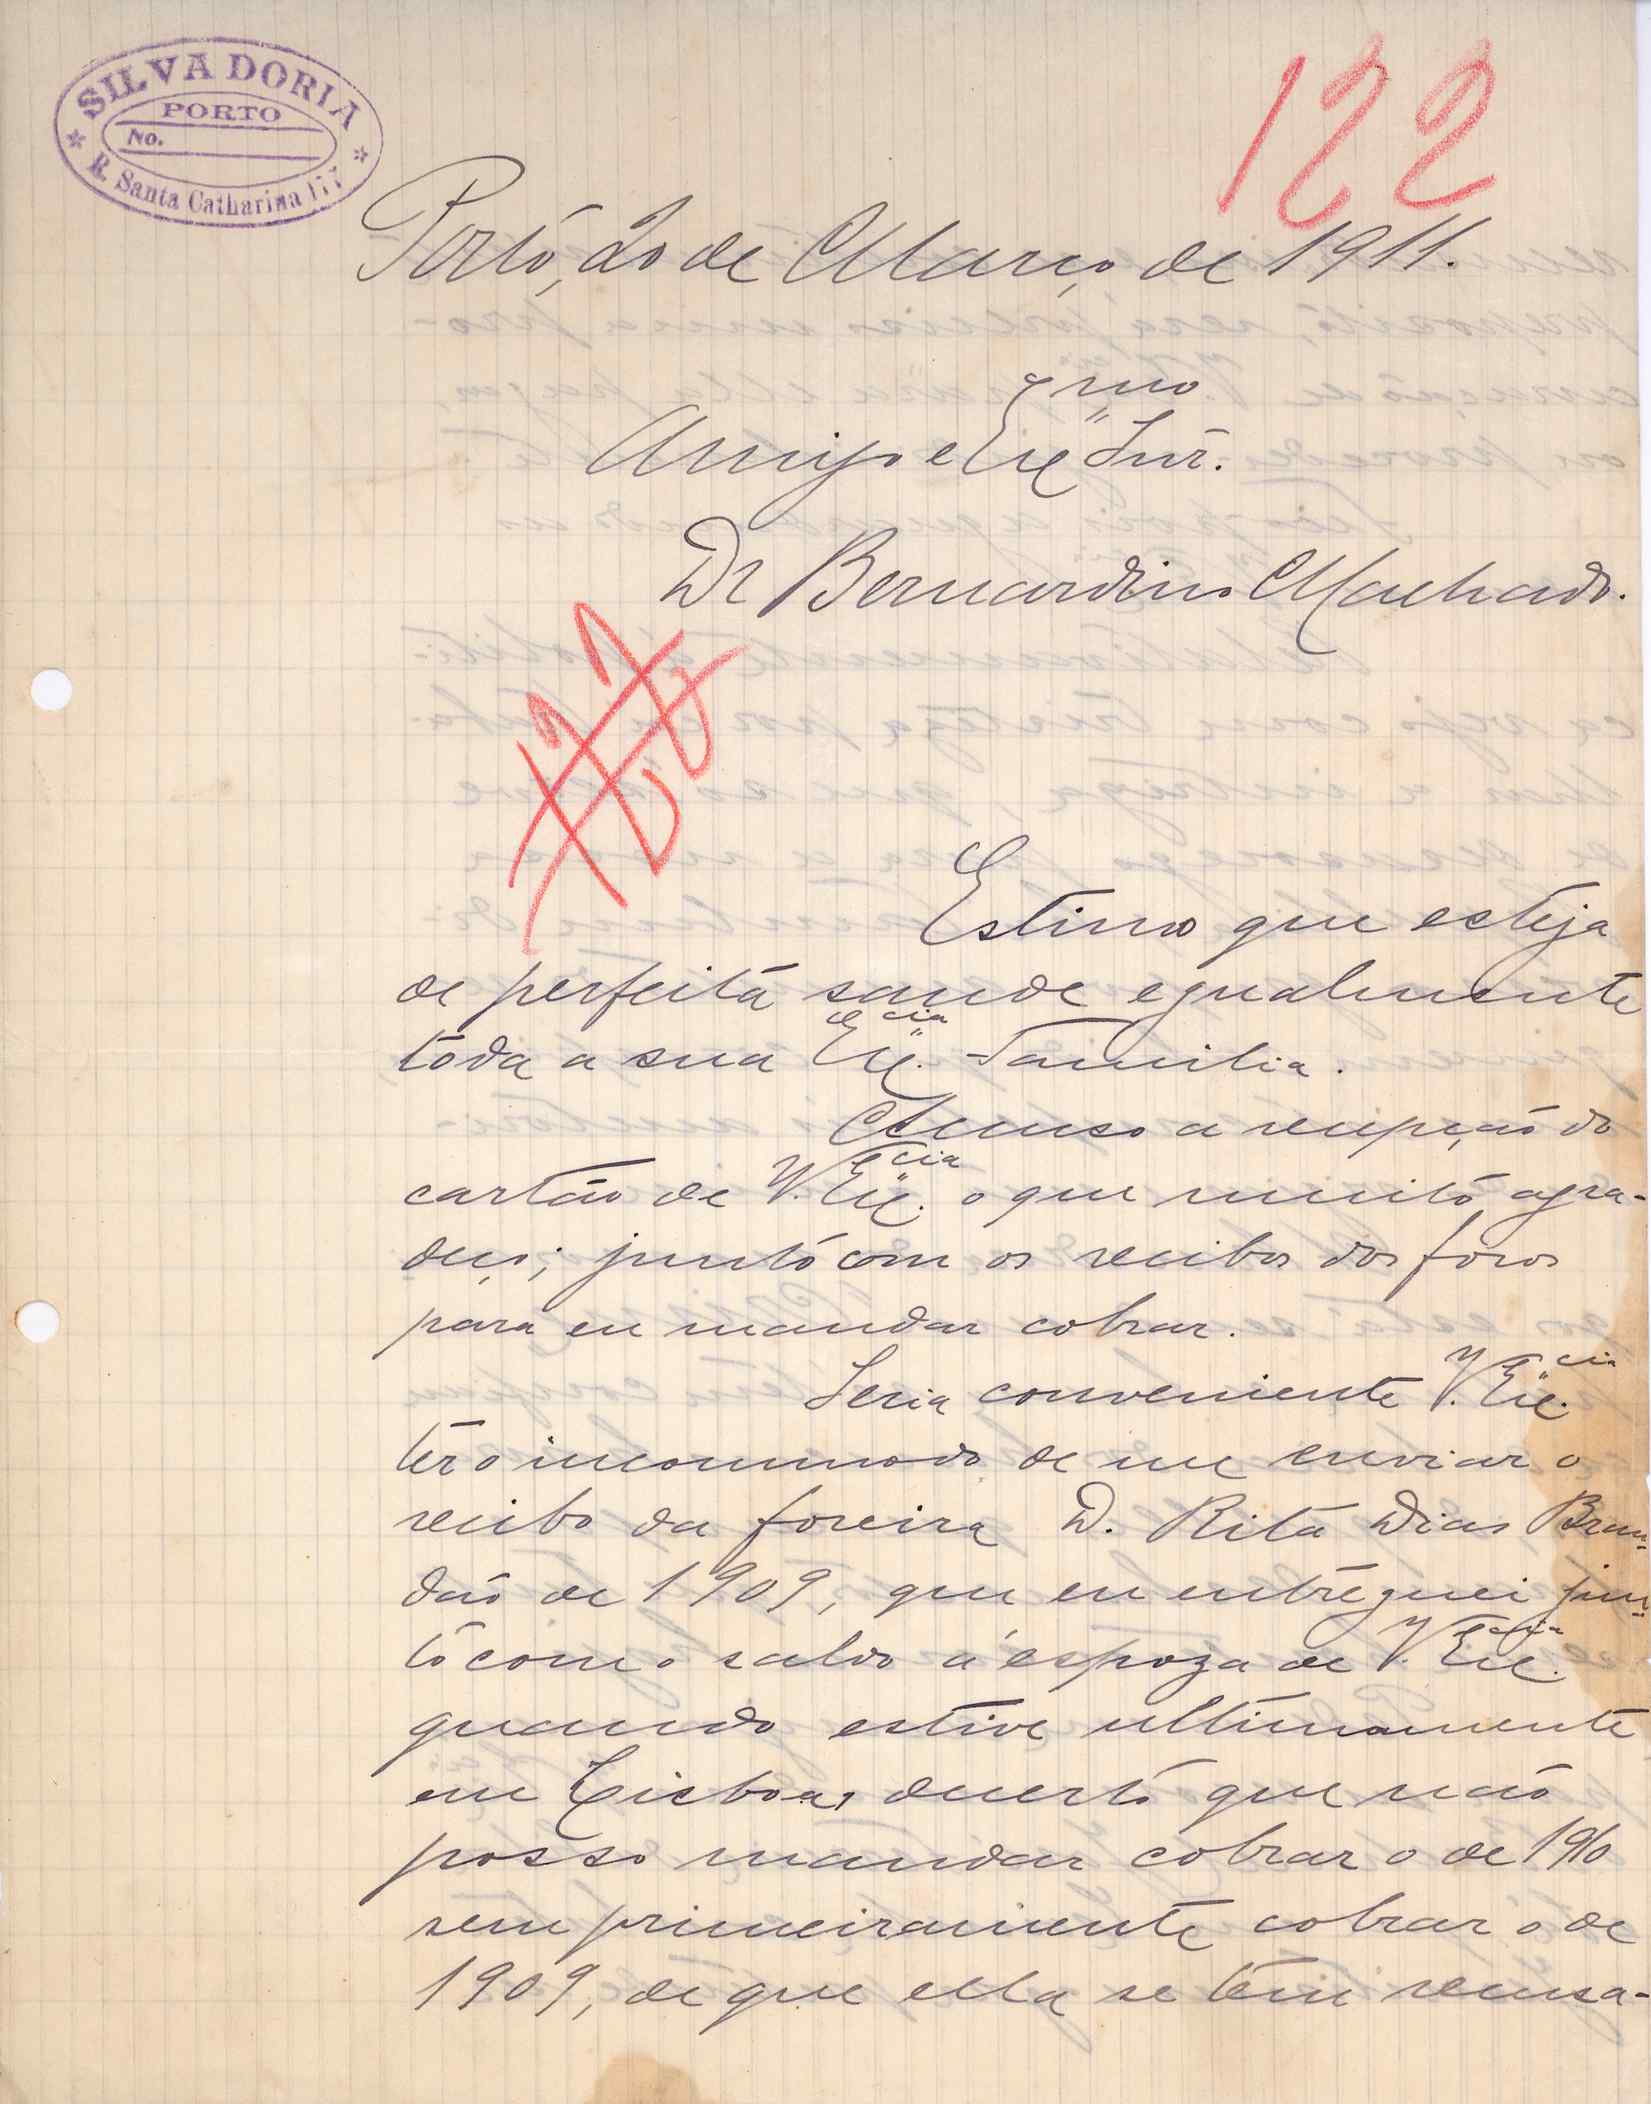 SILVA DORIA
PORTO
No.
R. Santa Catharina
122
Porto, 20 de Março de 1911.
Amigo e Exmo Snr.
Dr Bernardino Machado.
Estimo que esteja
de perfeita saude egualmente
toda a sua Excia Familia.
Accuso a recepção do
cartão de V. Excia o que muito agra-
deço; junto com os recibos dos foros
para eu mandar cobrar.
Seria conveniente V. Excia
ter o incommodo de me enviar o
recibo da foreira D. Rita Dias Bran-
dão de 1909, que eu entreguei jun-
to com o saldo á espoza de V. Excia
quando estive ultimamente
em Lisboa, decerto que não
posso mandar cobrar o de 1910
sem primeiramente cobrar o de
1909, de que ella se tem recusa-